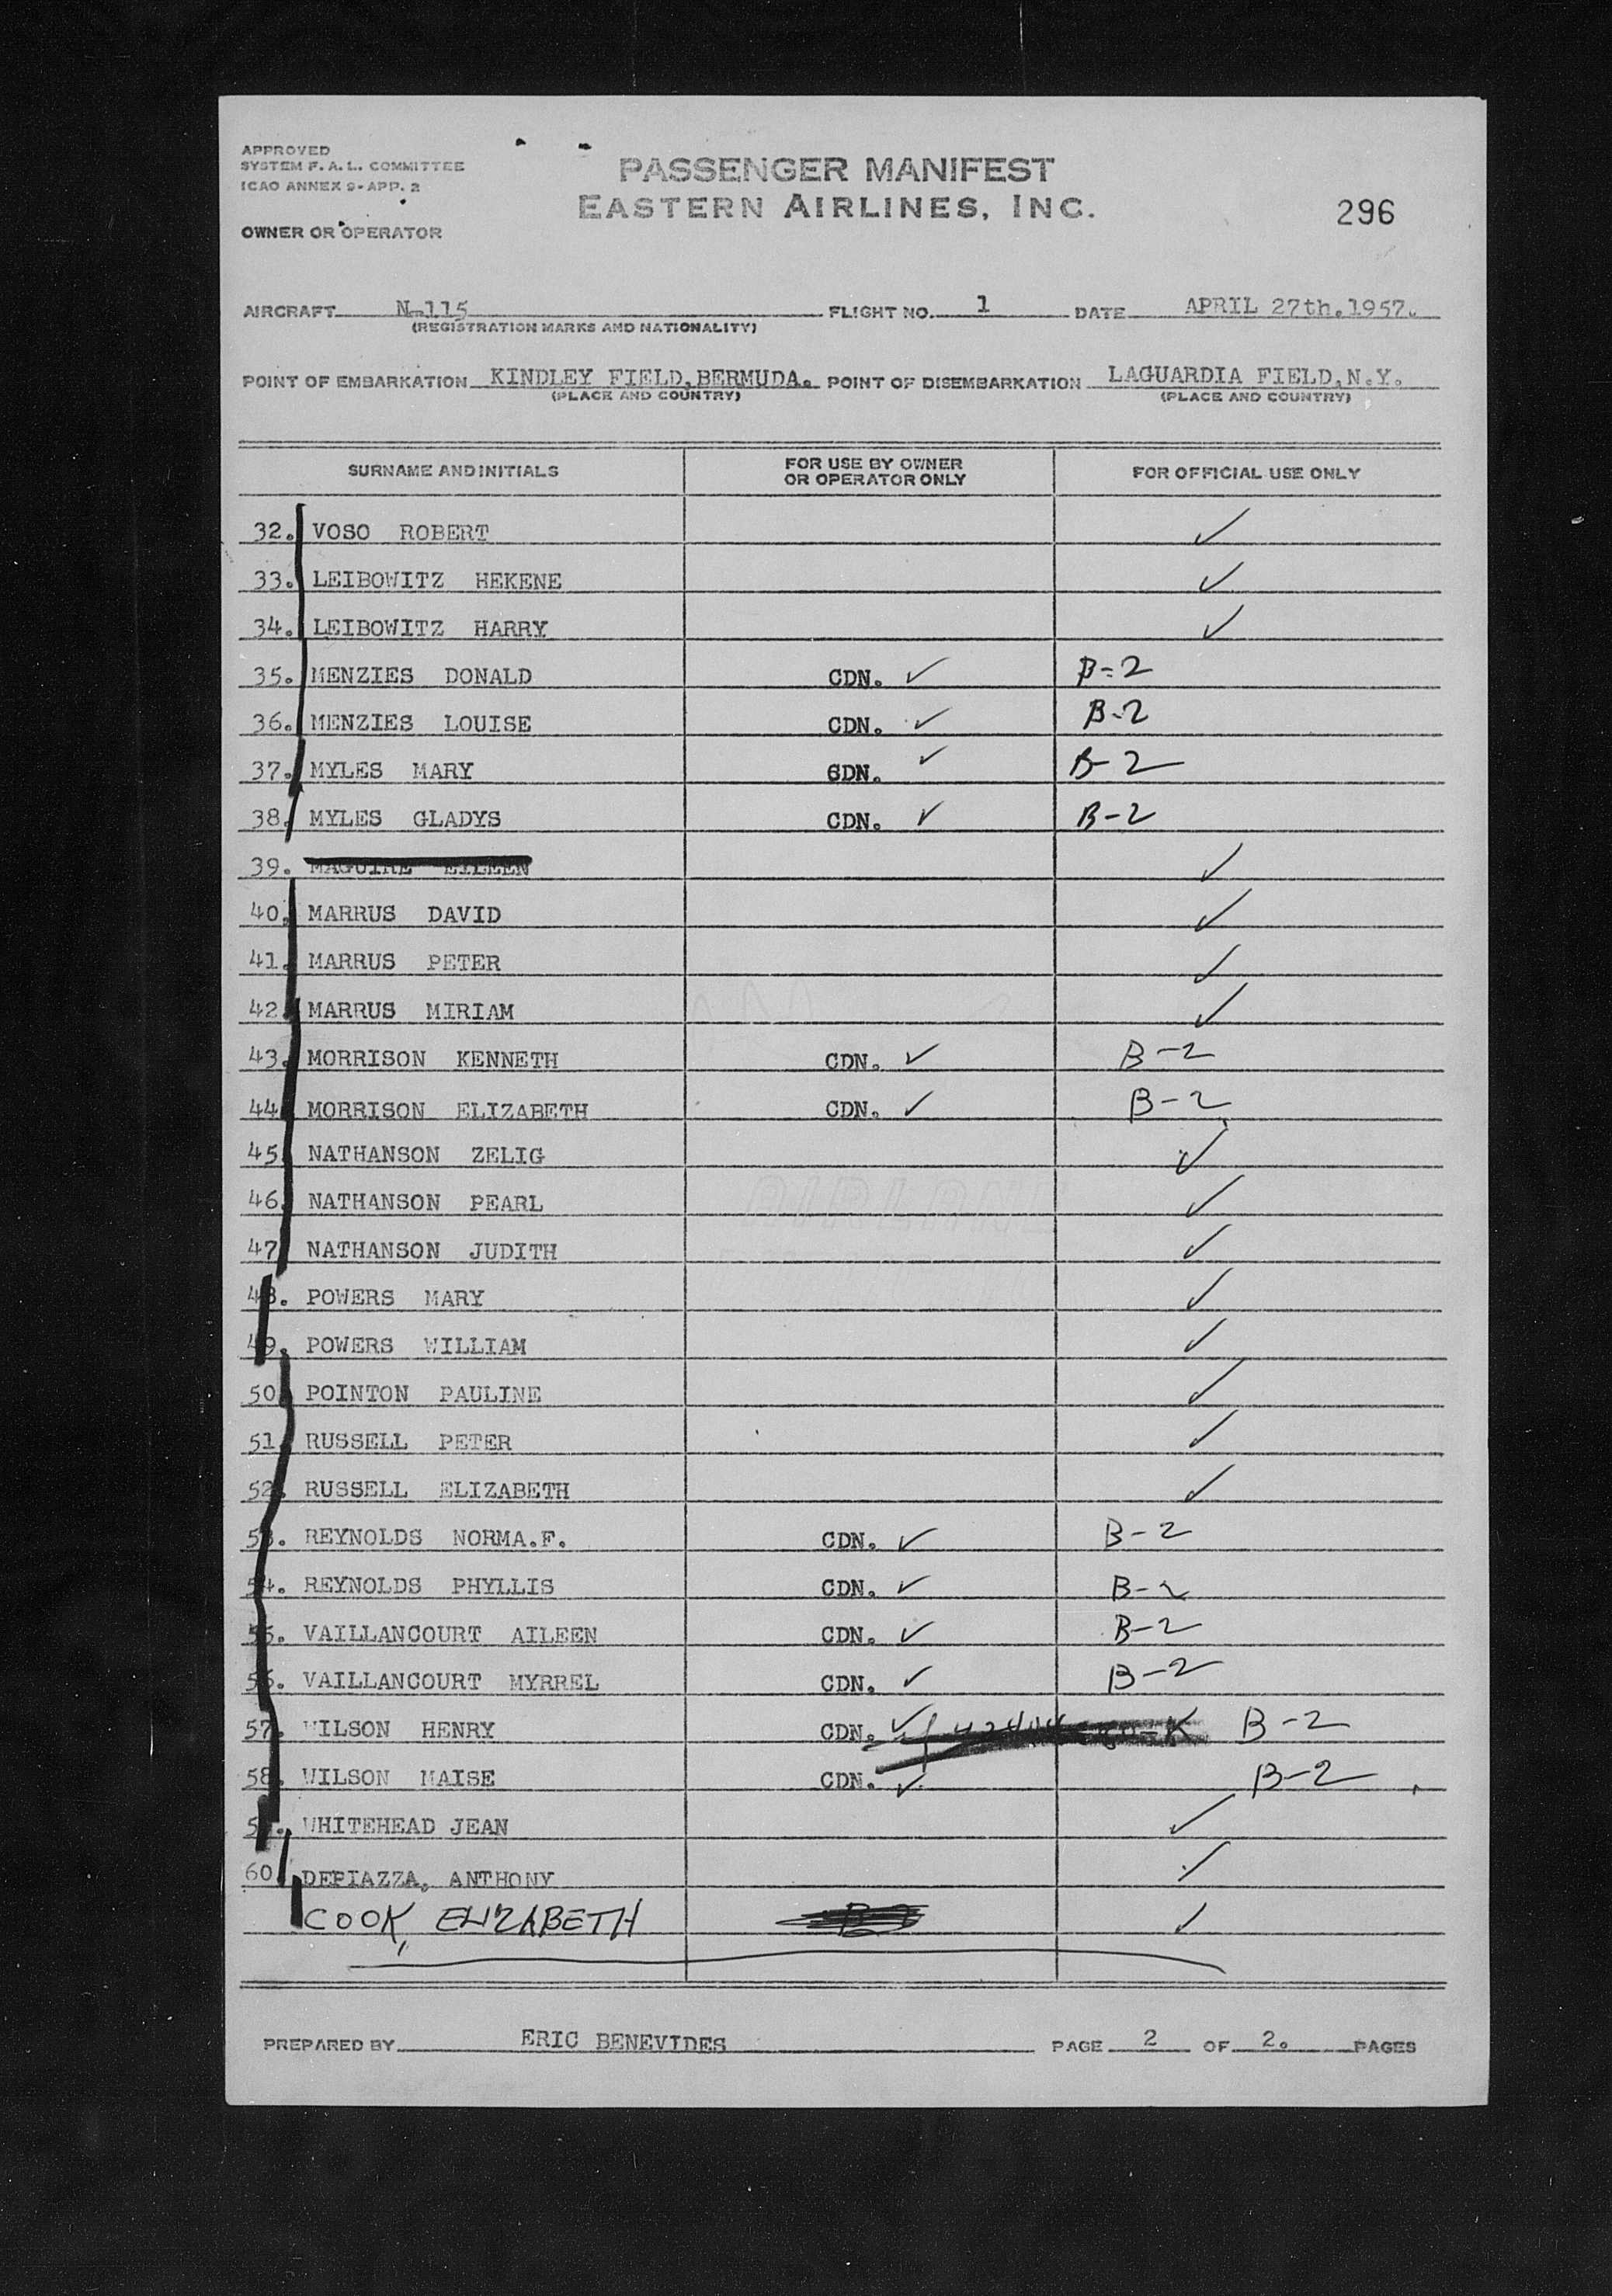 APPROVED
SYSTEM F. A. L. COMMITTEE
ICAO ANNEX 9-APP. 2
PASSENGER MANIFEST
EASTERN AIRLINES, INC.
296
OWNER OR OPERATOR
AIRCRAFT N-115 FLIGHT NO. 1 DATE APRIL 27th.1957.
(REGISTRATION MARKS AND NATIONALITY)
POINT OF EMBARKATION KINDLEY FIELD,BERMUDA. POINT OF DISEMBARKATION LAGUARDIA FIELD,N.Y.
(PLACE AND COUNTRY) (PLACE AND COUNTRY)
SURNAME AND INITIALS FOR USE BY OWNER OR OPERATOR ONLY FOR OFFICIAL USE ONLY
32. VOSO ROBERT ✓
33. LEIBOWITZ HEKENE ✓
34. LEIBOWITZ HARRY ✓
35. MENZIES DONALD CDN. ✓ B-2
36. MENZIES LOUISE CDN. ✓ B-2
37. MYLES MARY CDN. ✓ B-2
38. MYLES GLADYS CDN. ✓ B-2
39. MAGUIRE EILEEN ✓
40. MARRUS DAVID ✓
41. MARRUS PETER ✓
42. MARRUS MIRIAM ✓
43. MORRISON KENNETH CDN. ✓ B-2
44. MORRISON ELIZABETH CDN. ✓ B-2
45. NATHANSON ZELIG ✓
46. NATHANSON PEARL ✓
47. NATHANSON JUDITH ✓
48. POWERS MARY ✓
49. POWERS WILLIAM ✓
50. POINTON PAULINE ✓
51. RUSSELL PETER ✓
52. RUSSELL ELIZABETH ✓
53. REYNOLDS NORMA.F. CDN. ✓ B-2
54. REYNOLDS PHYLLIS CDN. ✓ B-2
55. VAILLANCOURT AILEEN CDN. ✓ B-2
56. VAILLANCOURT MYRREL CDN. ✓ B-2
57. WILSON HENRY CDN. ✓ B-2
58. WILSON MAISE CDN. ✓ B-2
59. WHITEHEAD JEAN ✓
60. DEPIAZZA, ANTHONY ✓
COOK, ELIZABETH ✓
PREPARED BY ERIC BENEVIDES PAGE 2 OF 2. PAGES